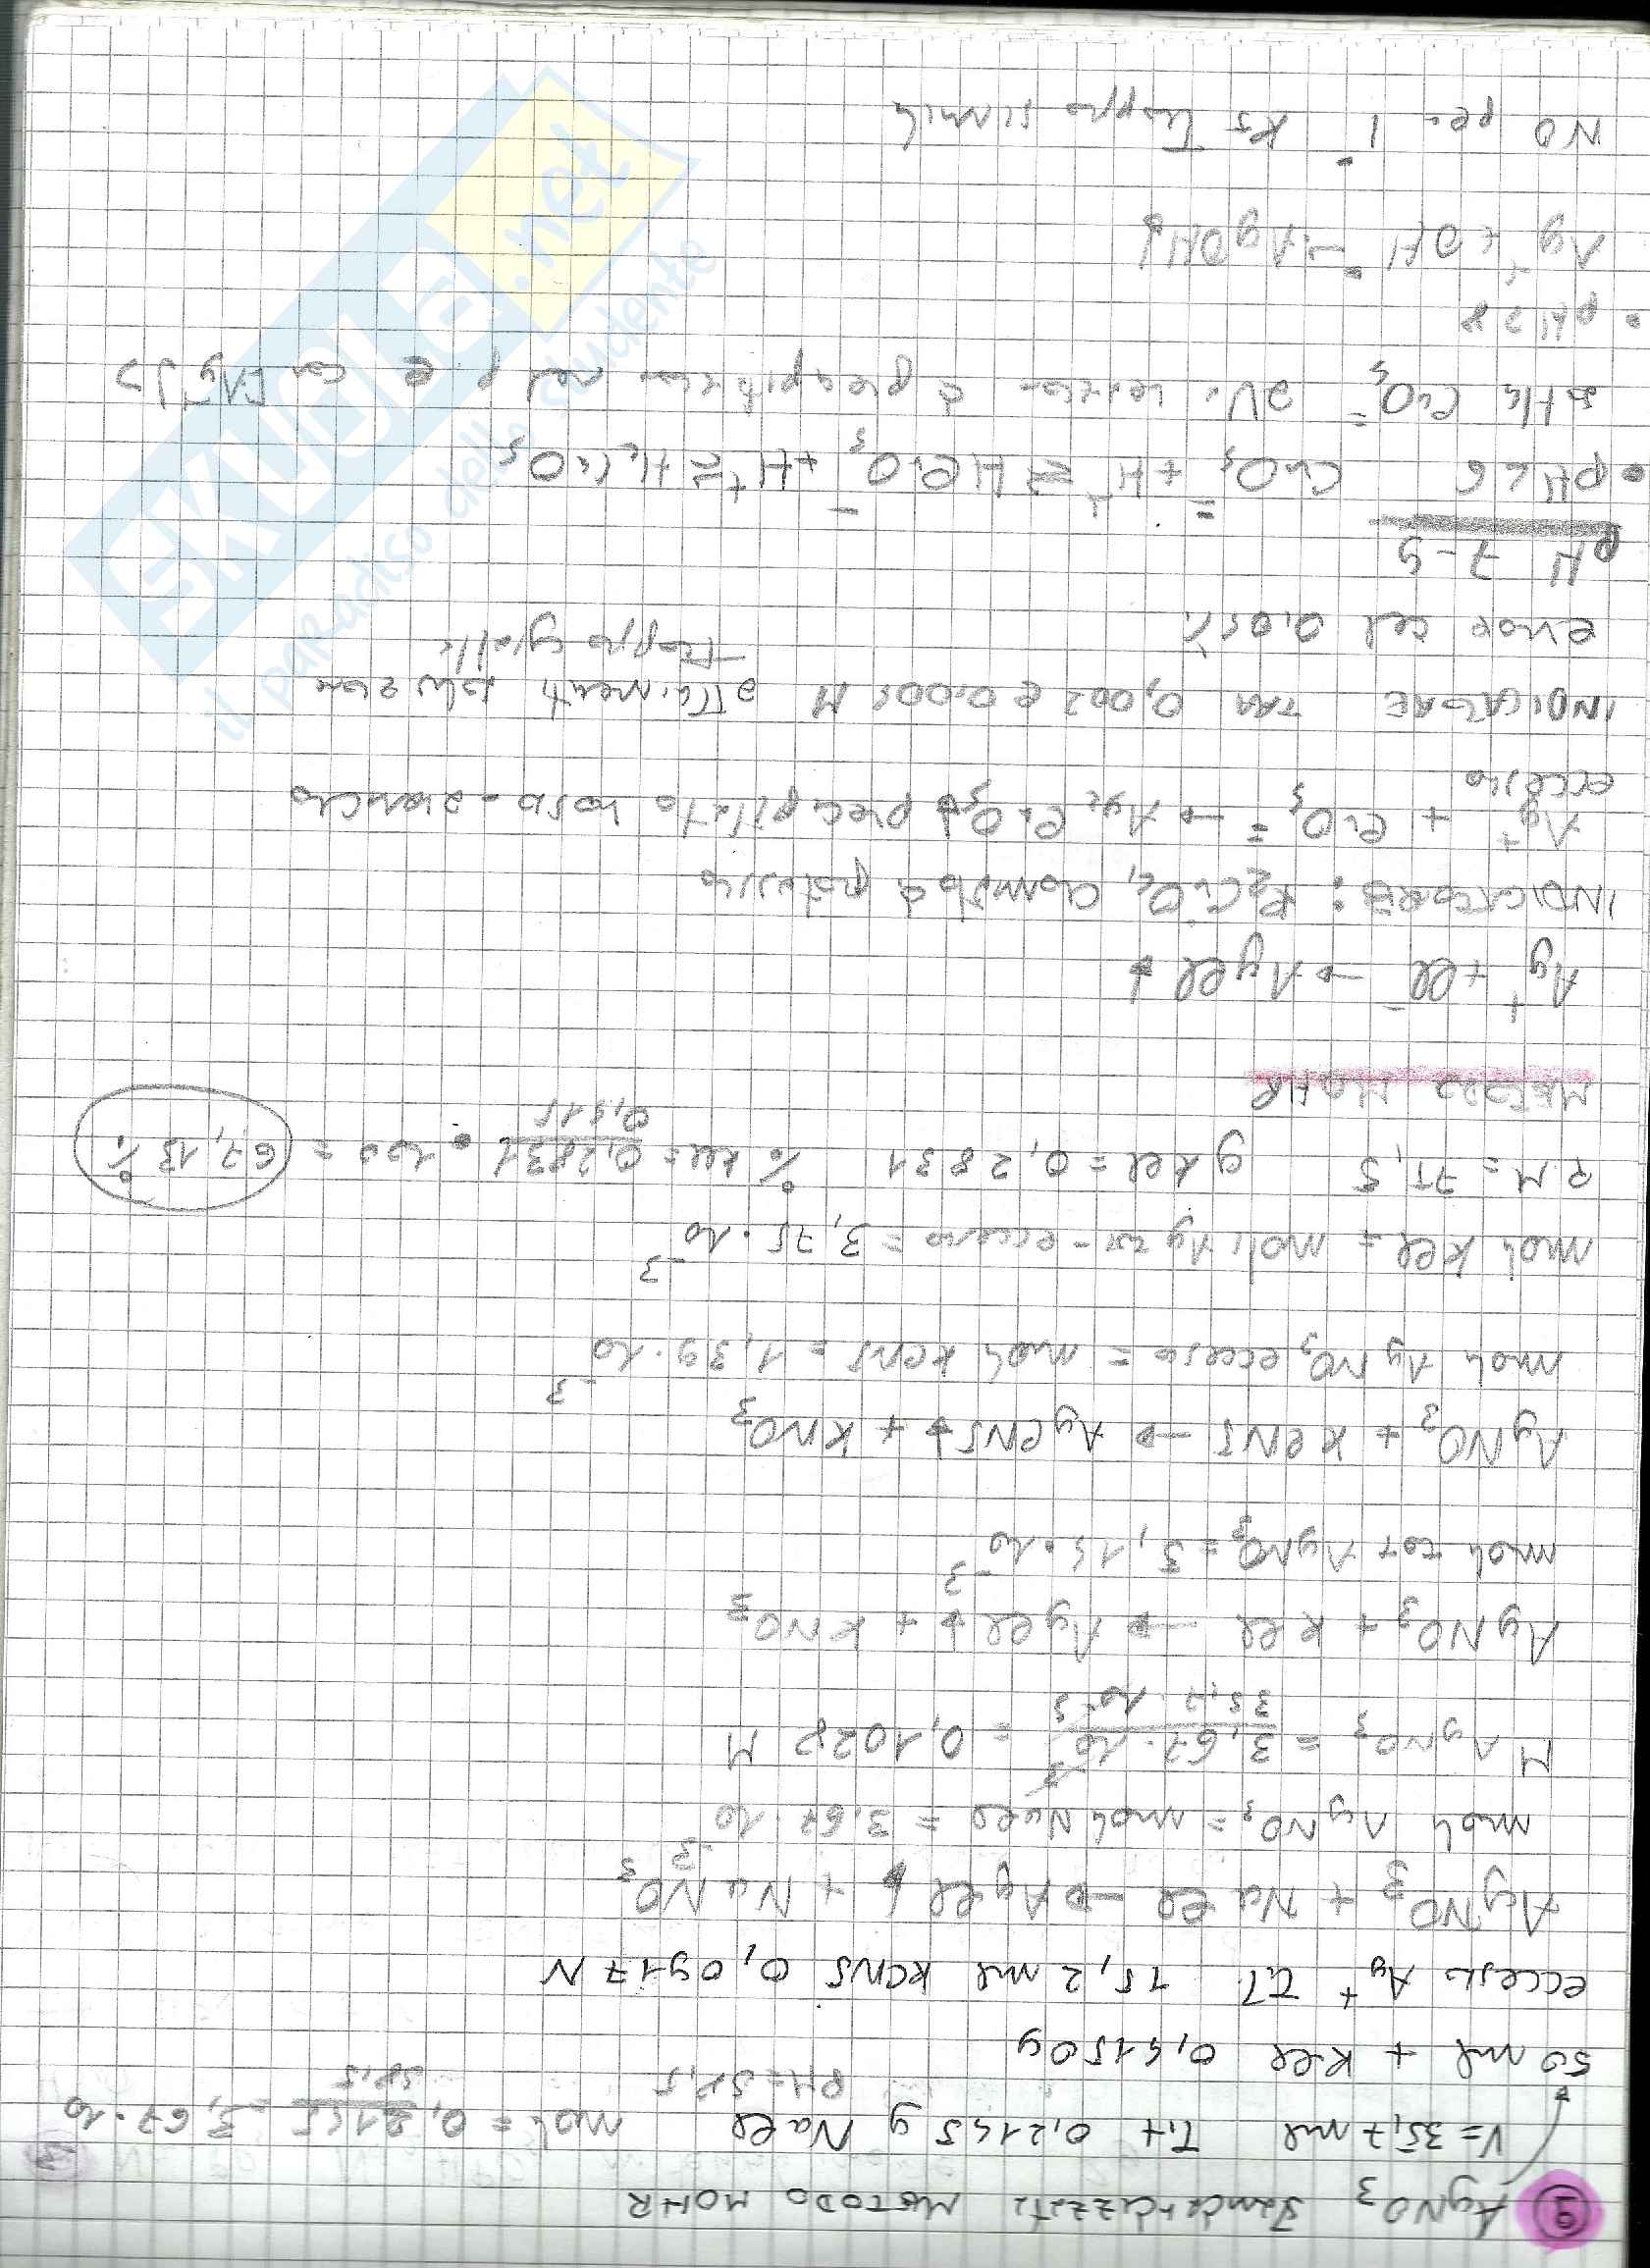 9 AgNO3 standardizzati METODO MOHR
V=35,7 ml Tit 0,2145 g NaCl mol = 0,2145 / 58,5 = 3,67·10
-3
PM=58,5
50 ml + KCl 0,4150 g
eccesso Ag+ TiT 15,2 ml KCNS 0,0917 N
AgNO3 + NaCl → AgCl ↓ + NaNO3
moli AgNO3 = moli NaCl = 3,67·10-3
M AgNO3 = 3,67·10-3 / 35,7·10-3 = 0,1028 M
AgNO3 + KCl → AgCl ↓ + KNO3
moli TOT AgNO3 = 5,14·10-3
AgNO3 + KCNS → AgCNS ↓ + KNO3
moli AgNO3 eccesso = moli KCNS = 1,39·10-3
moli KCl = moli Ag TOT - eccesso = 3,75·10-3
PM = 75,5 g KCl = 0,2831 % KCl = 0,2831 / 0,415 · 100 = 67,13 %
METODO MOHR
Ag+ + Cl- → AgCl ↓
INDICATORE: K2CrO4, cromato di potassio
Ag+ + CrO4= → Ag2CrO4↓ precipitato rosso-arancio
eccesso
INDICATORE TRA 0,002 e 0,005 M altrimenti soluzione
troppo gialla
error del 0,05%
pH 7-9
• pH<6 CrO4= + H+ ⇄ HCrO4- + H+ ⇄ H2CrO4
CrO4= e precipitazione nel p.e con [Ag+]>
• pH>8
Ag+ + OH- → AgOH↓
NO per I- KS troppo simili
il paradiso dello studente
SKUOLA.net